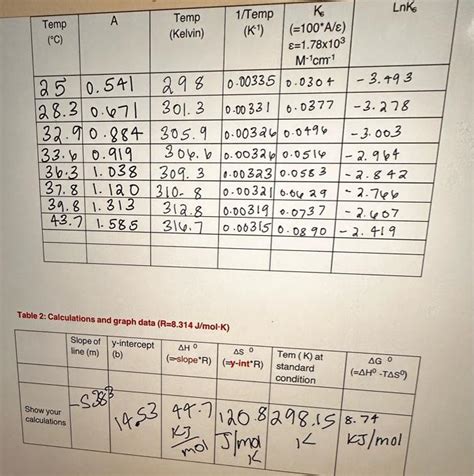 Temp (°C) A Temp (Kelvin) 1/Temp (K-1) Ks (=100*A/ε) ε=1.78x10³ M-1cm-1 LnKs
25 0.541 298 0.00335 0.0304 -3.493
28.3 0.671 301.3 0.00331 0.0377 -3.278
32.9 0.884 305.9 0.00326 0.0496 -3.003
33.6 0.919 306.6 0.00326 0.0516 -2.964
36.3 1.038 309.3 0.00323 0.0583 -2.842
37.8 1.120 310.8 0.00321 0.0629 -2.766
39.8 1.313 312.8 0.00319 0.0737 -2.607
43.7 1.585 316.7 0.00315 0.0890 -2.419
Table 2: Calculations and graph data (R=8.314 J/mol·K)
Slope of line (m) y-intercept (b) ΔH ° (=-slope*R) ΔS ° (=y-int*R) Tem (K) at standard condition ΔG ° (=ΔH° -TΔS°)
Show your calculations -5383 14.53 44.7 KJ/mol 120.8 J/mol K 298.15 K 8.74 KJ/mol